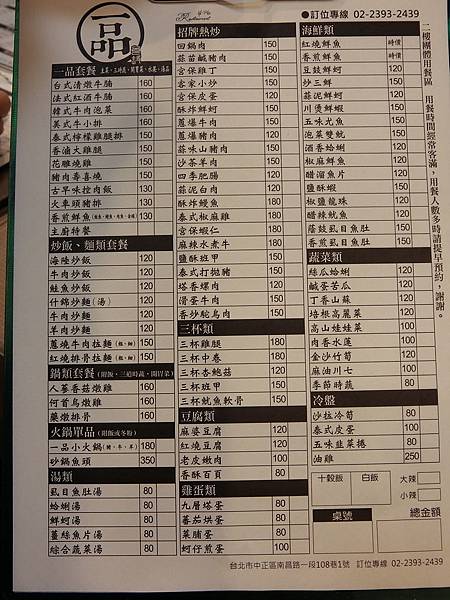 一品
●訂位專線 02-2393-2439
二樓團體用餐區 用餐時間經常客滿，用餐人數多時請提早預約，謝謝。
一品套餐
台式清燉牛腩 160
法式紅酒牛腩 160
韓式牛肉泡菜 160
美式牛小排 160
泰式檸檬雞腿排 150
香滷大雞腿 150
花雕燒雞 150
豬肉壽喜燒 150
古早味控肉飯 130
火車頭豬排 130
香煎鮮魚 130
主廚特餐
炒飯、麵類套餐
海陸炒飯 120
牛肉炒飯 120
鮭魚炒飯 120
什錦炒麵(湯) 120
牛肉炒麵 120
羊肉炒麵 120
蔥燒牛肉拉麵(粗、細) 150
紅燒排骨拉麵(粗、細) 150
鍋類套餐(附飯、三道時蔬、開胃菜)
人蔘香菇燉雞 160
何首烏燉雞 160
藥燉排骨 160
火鍋單品(附飯或冬粉)
一品小火鍋(豬、牛、羊) 180
砂鍋魚頭 350
湯類
虱目魚肚湯 80
蛤蜊湯 80
鮮蚵湯 80
薑絲魚片湯 80
綜合蔬菜湯 80
招牌熱炒
回鍋肉 150
蒜苗鹹豬肉 150
宮保雞丁 150
客家小炒 150
宮保皮蛋 120
酥炸鮮蚵 150
蔥爆牛肉 150
蔥爆豬肉 120
蒜味山豬肉 150
沙茶羊肉 150
四季肥腸 120
蒜泥白肉 120
酥炸鰻魚 180
泰式椒麻雞 180
宮保蝦仁 180
麻辣水煮牛 180
鹽酥班甲 150
泰式打拋豬 150
塔香螺肉 120
滑蛋牛肉 150
香炒鴕鳥肉 150
三杯類
三杯雞腿 180
三杯中卷 180
三杯杏鮑菇 120
三杯班甲 150
三杯魷魚軟骨 150
豆腐類
麻婆豆腐 120
紅燒豆腐 120
老皮嫩肉 100
香酥百頁 80
雞蛋類
九層塔蛋 80
蕃茄烘蛋 80
菜脯蛋 80
蚵仔煎蛋 100
海鮮類
紅燒鮮魚 時價
香煎鮮魚 時價
豆鼓鮮蚵 120
炒三鮮 150
蒜泥鮮蚵 120
川燙鮮蝦 150
五味光魚 150
泡菜雙魷 150
酒香蛤蜊 120
椒麻鮮魚 150
醋溜魚片 150
鹽酥蝦 150
椒鹽龍珠 120
醋辣魷魚 120
蔭鼓虱目魚肚 150
香煎虱目魚肚 150
蔬菜類
絲瓜蛤蜊 120
鹹蛋苦瓜 120
丁香山蘇 120
培根高麗菜 120
高山娃娃菜 100
肉香水蓮 100
金沙竹筍 120
麻油川七 100
季節時蔬 80
冷盤
沙拉冷筍 80
泰式皮蛋 100
五味韭菜捲 80
油雞 250
十穀飯 白飯 大辣
小辣
桌號 總金額
台北市中正區南昌路一段108巷1號 訂位專線 02-2393-2439